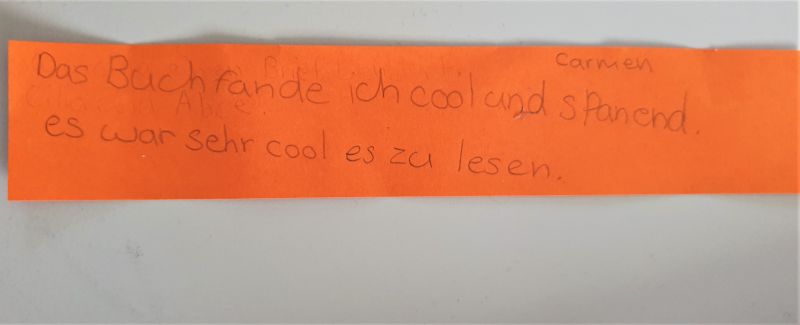 Carmen
Das Buch fande ich cool und spanend.
es war sehr cool es zu lesen.